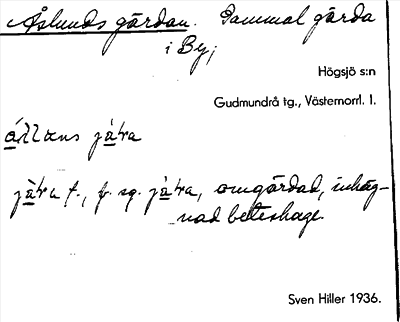 Åslunds gärdan. Gammal gärda
i By;
Högsjö s:n
Gudmundrå tg., Västernorrl. l.
jätra f., fr. sg. jätra, omgärdad, inhäg-
nad beteshage.
Sven Hiller 1936.